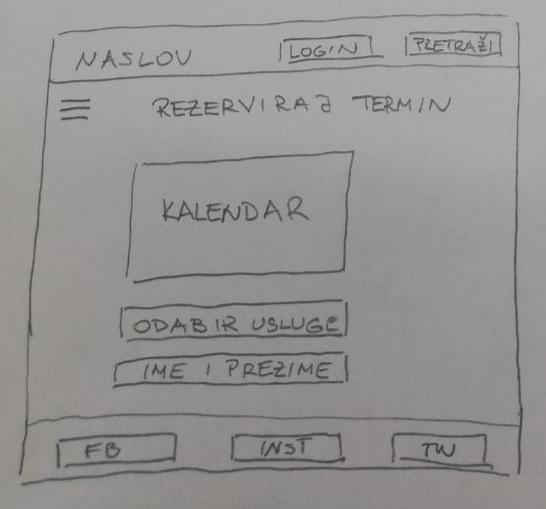 NASLOV LOGIN PRETRAŽI
REZERVIRAJ TERMIN
KALENDAR
ODABIR USLUGE
IME I PREZIME
FB INST TW